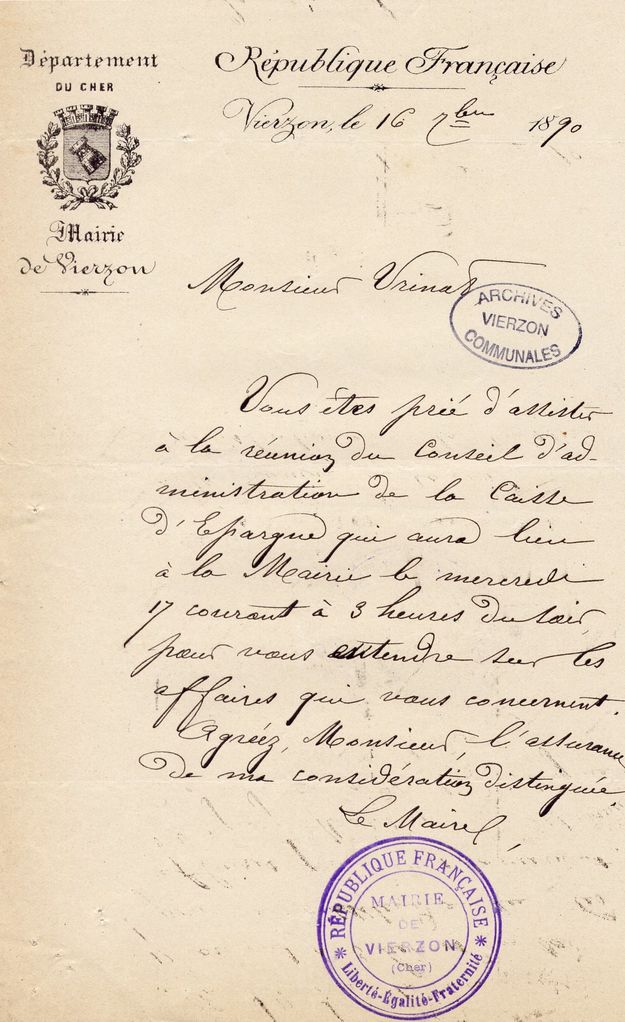 Département
DU CHER
Mairie
de Vierzon
République Française
Vierzon, le 16 7bre 1890
Monsieur Vrinat
ARCHIVES
VIERZON
COMMUNALES
Vous êtes prié d'assister
à la réunion du Conseil d'ad-
ministration de la Caisse
d'Epargne qui aura lieu
à la Mairie le mercredi
17 courant à 3 heures du soir,
pour vous entendre sur les
affaires qui vous concernent.
Agréez, Monsieur, l'assurance
de ma considération distinguée.
Le Maire,
RÉPUBLIQUE FRANÇAISE
MAIRIE
DE
VIERZON
(Cher)
Liberté-Égalité-Fraternité